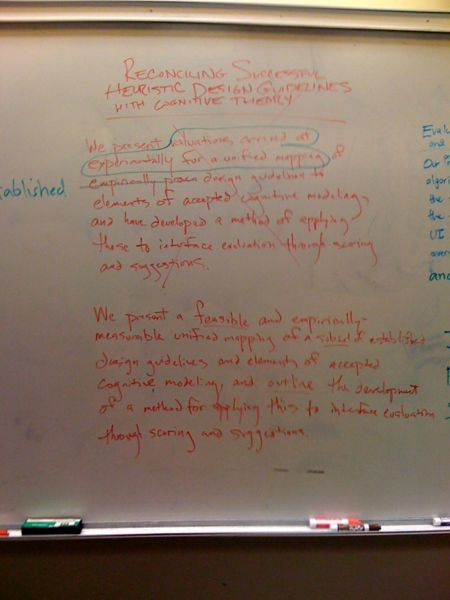 RECONCILING SUCCESSFUL
HEURISTIC DESIGN GUIDELINES
WITH COGNITIVE THEORY
We present valuations arrived at
experimentally for a unified mapping of
empirically proven design guidelines to
elements of accepted cognitive modeling,
and have developed a method of applying
these to interface evaluation through scoring
and suggestions.
We present a feasible and empirically-
measurable unified mapping of a subset of established
design guidelines and elements of accepted
cognitive modeling, and outline the development
of a method for applying this to interface evaluation
through scoring and suggestions.
ablished
Evalu
and
Our P
algori
the
the
UI
over
and